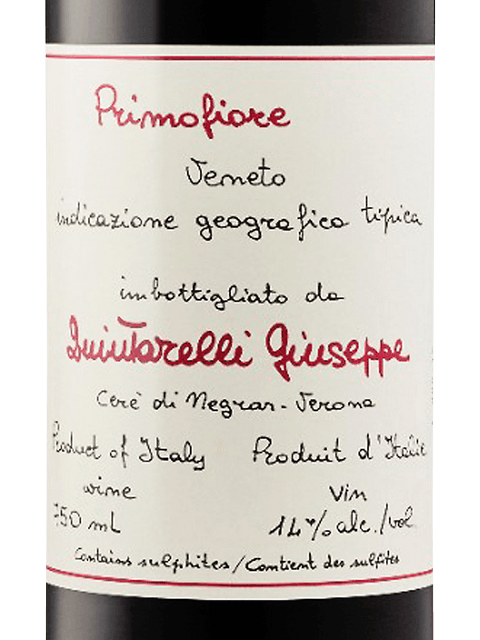 Primofiore
Veneto
indicazione geografica tipica
imbottigliato da
Quintarelli Giuseppe
Cerè di Negrar - Verona
Product of Italy Produit d'Italie
wine Vin
750 mL 14% alc./vol.
Contains sulphites/Contient des sulfites